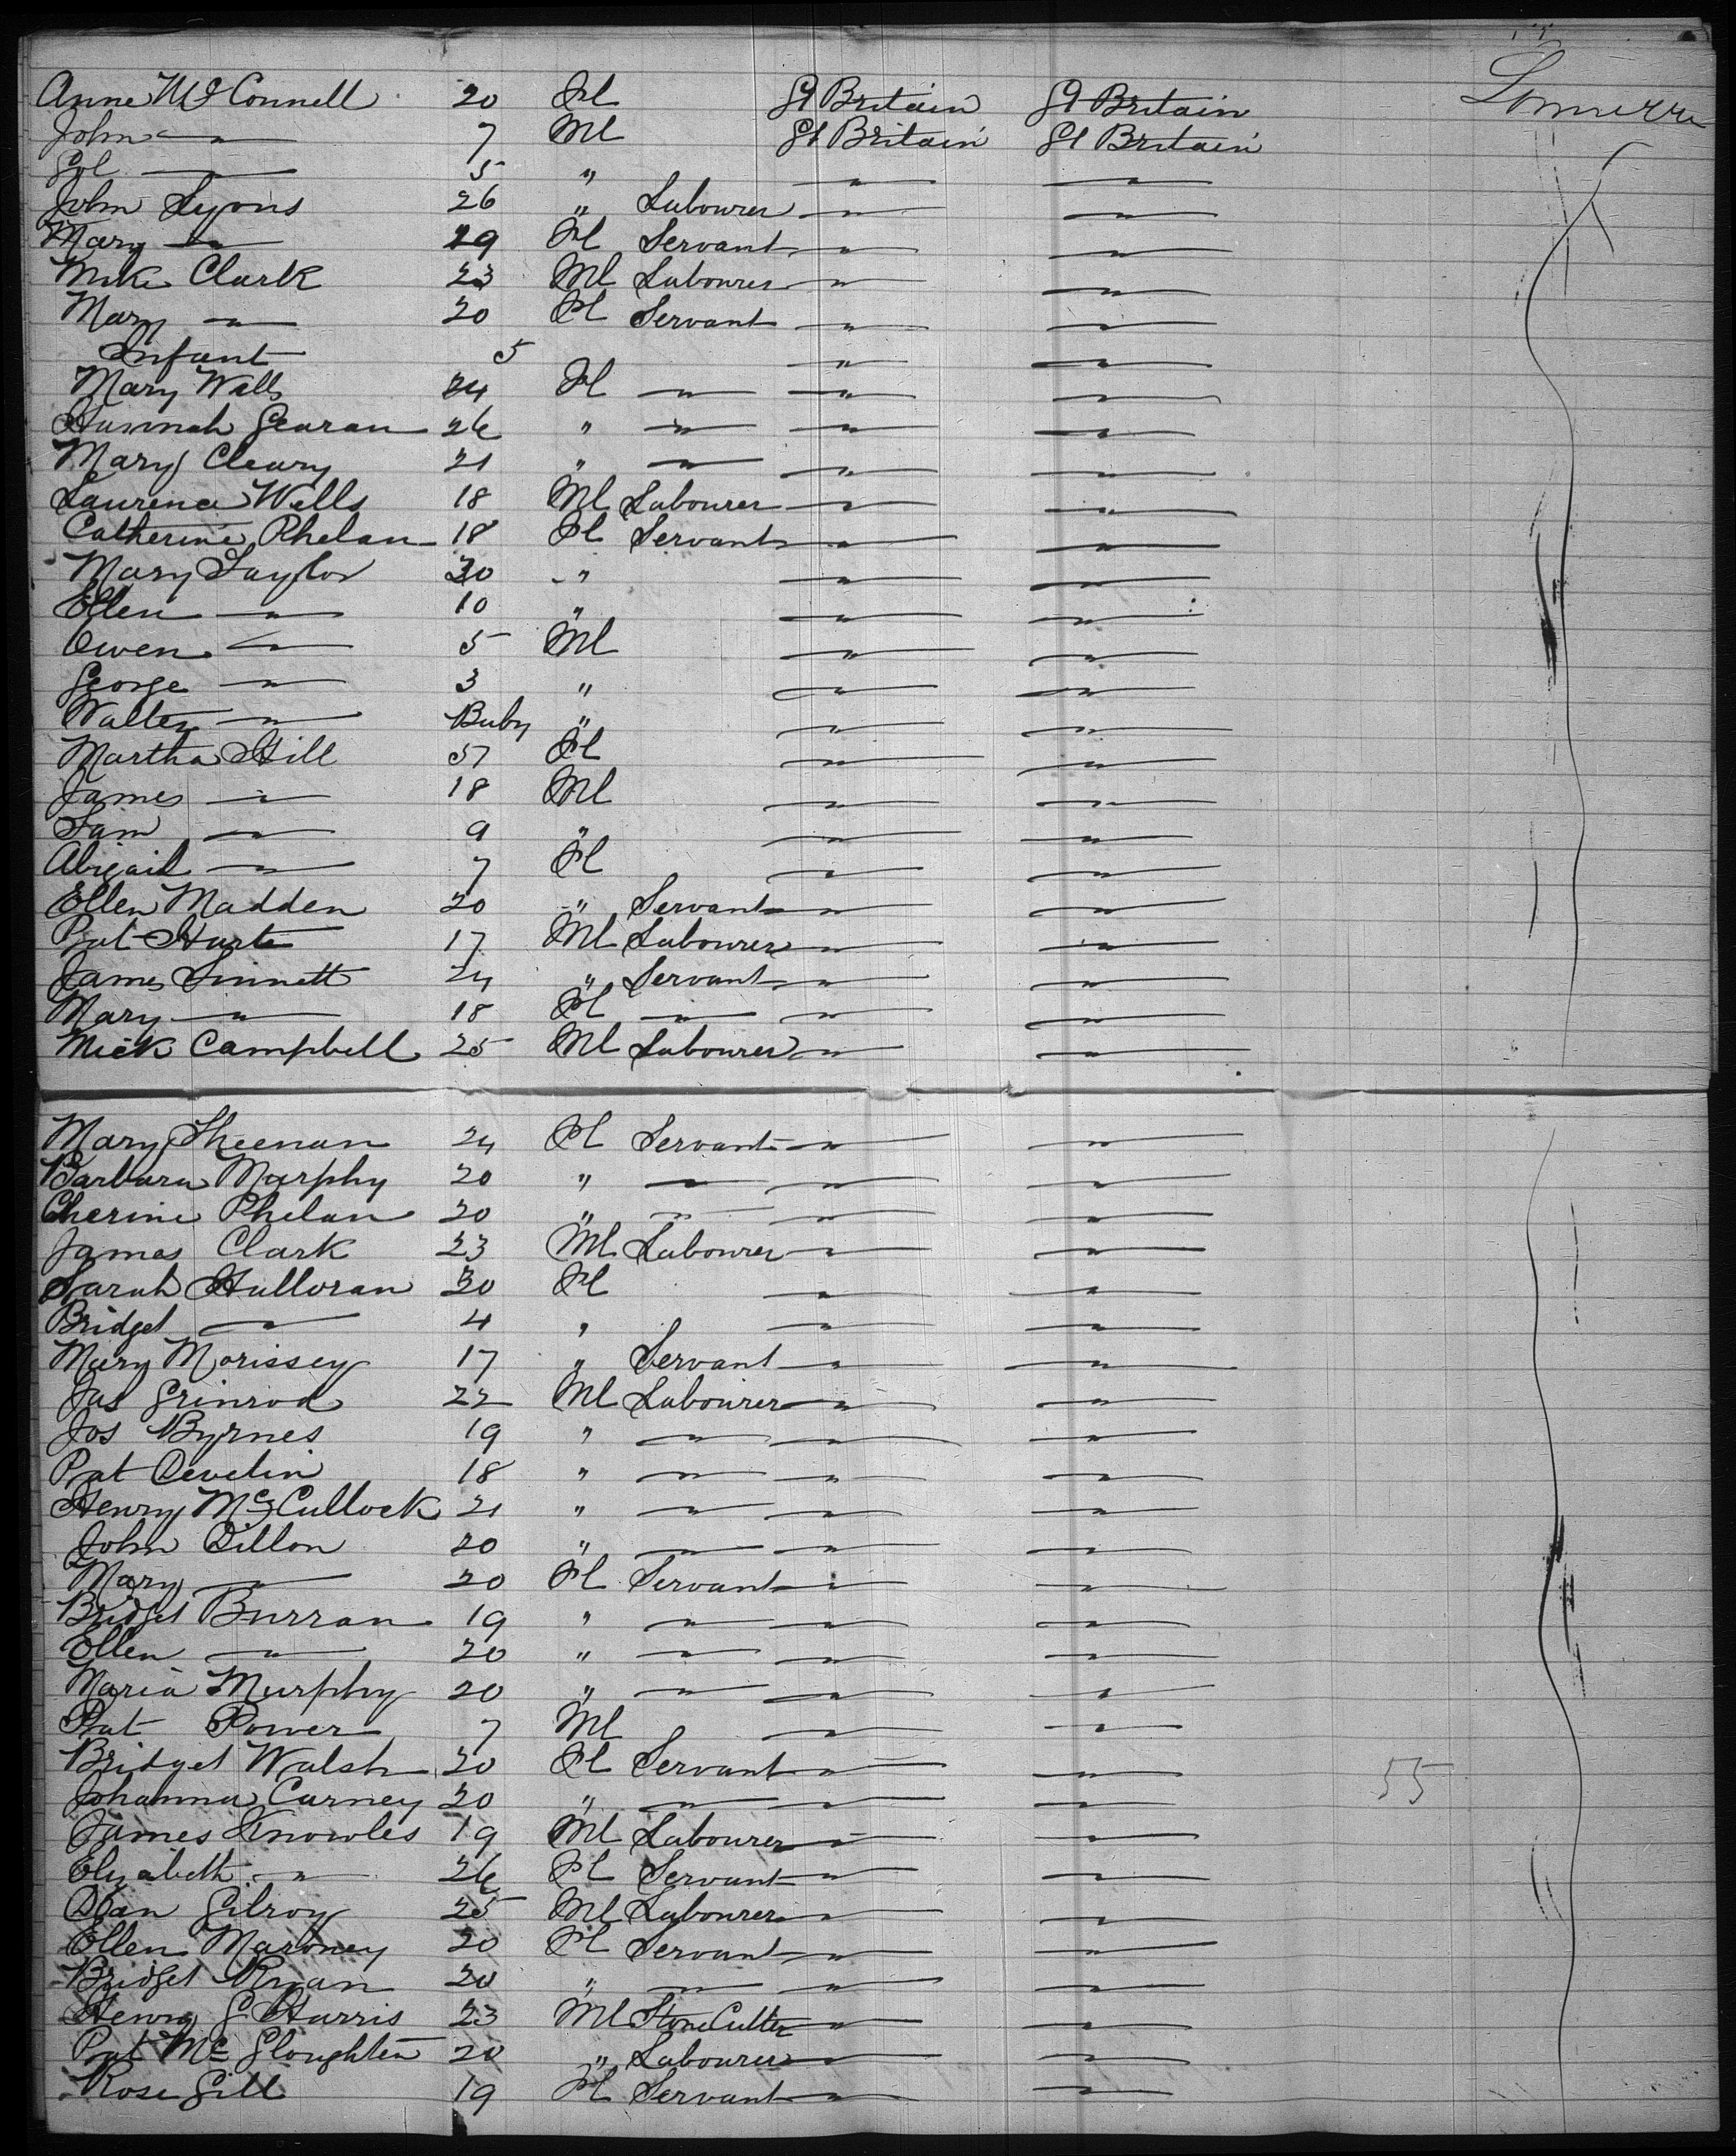 Anne McConnell 20 Fl Gt Britain Gt Britain
John " 7 Ml Gt Britain Gt Britain
" 5 " " "
John Lyons 26 " Labourer " "
Mary " 19 Fl Servant " "
Mike Clark 23 Ml Labourer " "
Mary " 20 Fl Servant " "
Infant 5 " "
Mary Walls 24 Fl " " "
Hannah Gearan 26 " " " "
Mary Cleary 21 " " " "
Laurence Wells 18 Ml Labourer " "
Catherine Phelan 18 Fl Servant " "
Mary Taylor 30 " " "
Ellen " 10 " " "
Owen " 5 Ml " "
George " 3 " " "
Walter " Baby " " "
Martha Hill 37 Fl " "
James " 18 Ml " "
Sam " 9 " " "
Abigail " 7 Fl " "
Ellen Madden 20 " Servant " "
Pat Harte 17 Ml Labourer " "
James Sinnett 24 " Servant " "
Mary " 18 Fl " " "
Mick Campbell 25 Ml Labourer " "
Mary Sheenan 24 Fl Servant " "
Barbara Murphy 20 " " " "
Cherine Phelan 20 " " " "
James Clark 23 Ml Labourer " "
Sarah Halloran 30 Fl " "
Bridget " 4 " " "
Mary Morissey 17 " Servant " "
Jas Grinrod 22 Ml Labourer " "
Jos Byrnes 19 " " " "
Pat Develin 18 " " " "
Henry McCullock 21 " " " "
John Dillon 20 " " " "
Mary " 20 Fl Servant " "
Bridget Burran 19 " " " "
Ellen " 20 " " " "
Maria Murphy 20 " " " "
Pat Power 7 Ml " "
Bridget Walsh 20 Fl Servant " " 55
Johanna Carney 20 " " " "
James Knowles 19 Ml Labourer " "
Elizabeth " 26 Fl Servant " "
Dan Gilroy 25 Ml Labourer " "
Ellen Maroney 20 Fl Servant " "
Bridget Ryan 20 " " " "
Henry G Harris 23 Ml Stone Cutter " "
Pat Mc Gloughlen 20 " Labourer " "
Rose Gill 19 Fl Servant " "